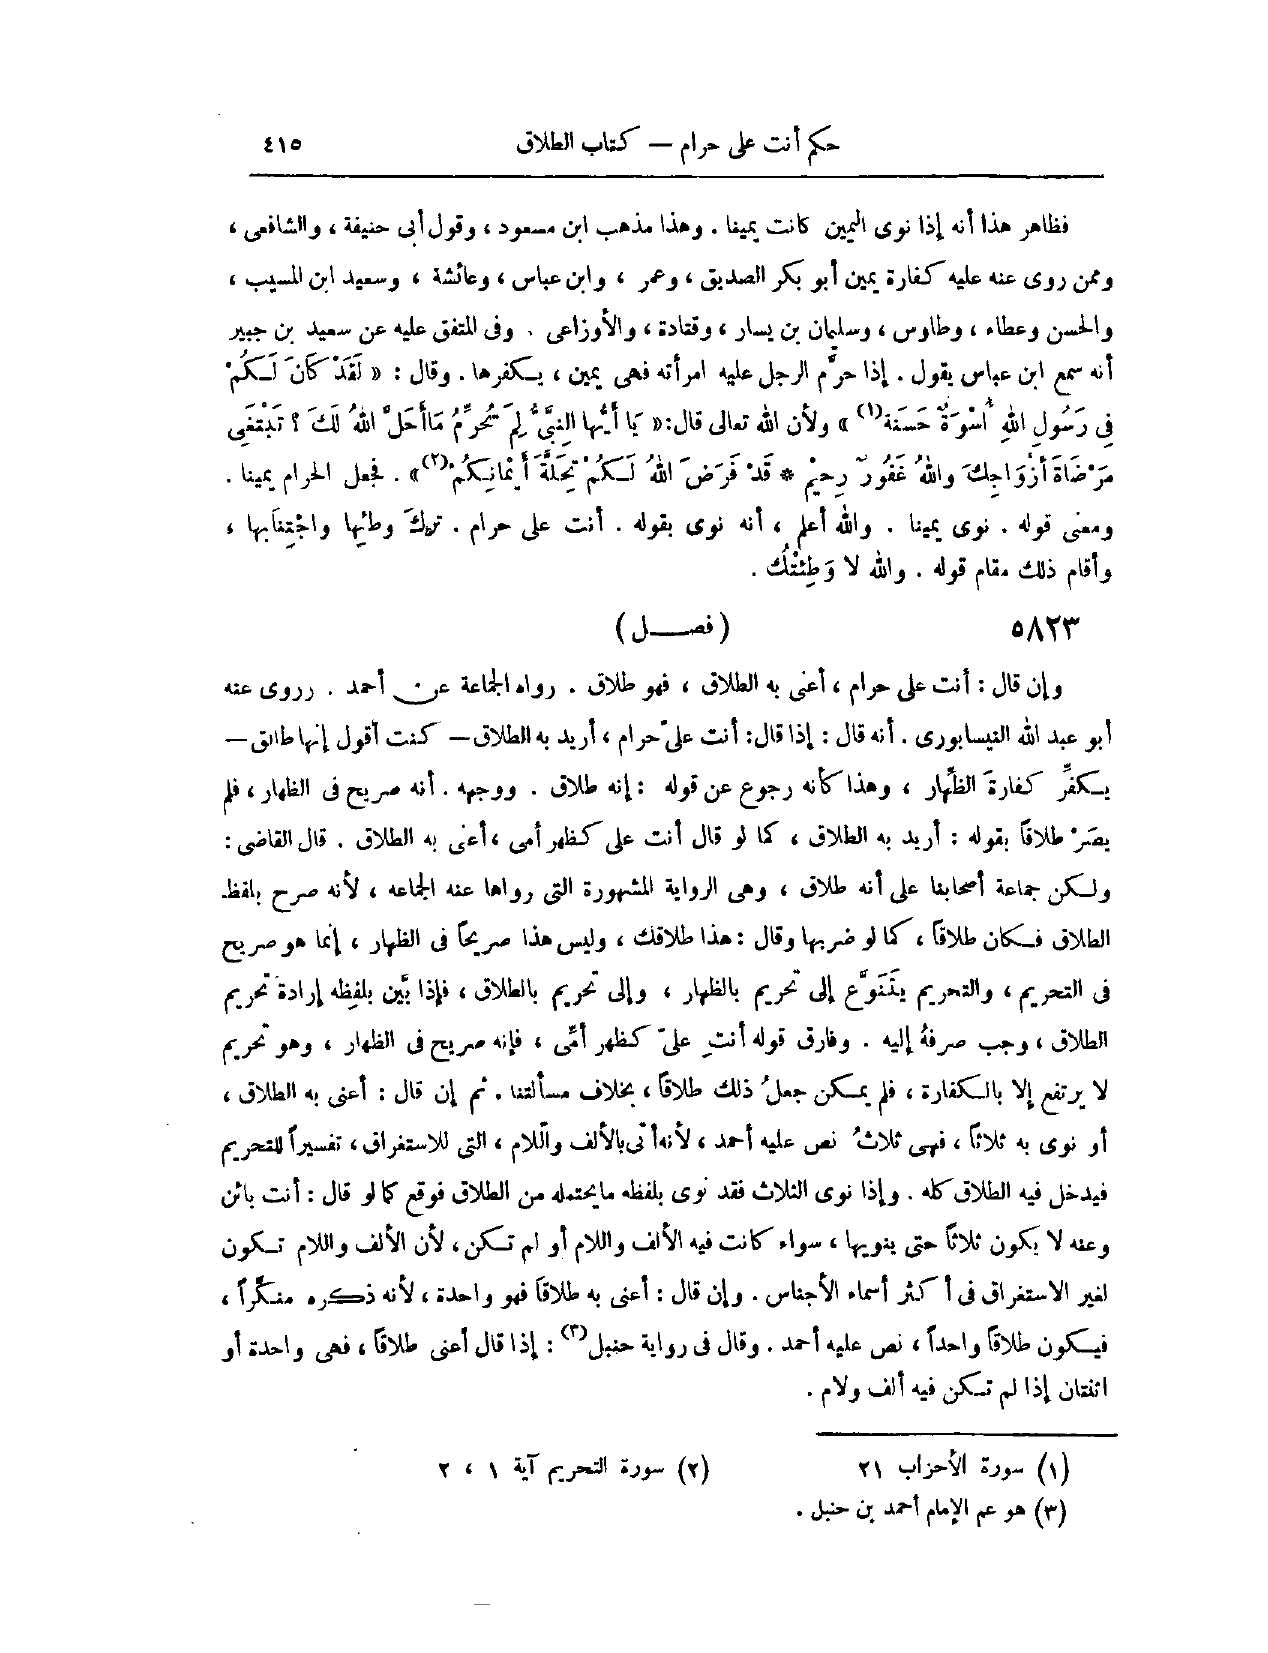 حكم أنت على حرام — كتاب الطلاق ٤١٥
فظاهر هذا أنه إذا نوى اليمين كانت يمينا . وهذا مذهب ابن مسعود ، وقول أبى حنيفة ، والشافعى ،
وممن روى عنه عليه كفارة يمين أبو بكر الصديق ، وعمر ، وابن عباس ، وعائشة ، وسعيد ابن المسيب ،
والحسن وعطاء ، وطاوس ، وسليمان بن يسار ، وقتادة ، والأوزاعى . وفى المتفق عليه عن سعيد بن جبير
أنه سمع ابن عباس يقول . إذا حرَّم الرجل عليه امرأته فهى يمين ، يكفرها . وقال : « لَقَدْ كَانَ لَكُمْ
فِى رَسُولِ اللهِ أُسْوَةٌ حَسَنَة(١) » ولأن الله تعالى قال: « يَا أَيُّها النِبىُّ لِمَ تُحرِّمُ مَاأَحَلَّ اللهُ لَكَ ؟ تَبْتَغَى
مَرْضَاةَ أزْوَاجِكَ واللهُ غَفُورٌ رحِيمْ * قَدْ فَرَضَ اللهُ لَكُمْ تَحِلَّةَ أَيْمَانِكُمْ(٢) » . فجعل الحرام يمينا .
ومعنى قوله . نوى يمينا . والله أعلم ، أنه نوى بقوله . أنت على حرام . تركَ وطئِها واجْتِنَابها ،
وأقام ذلك مقام قوله . والله لا وَطِئْتُك .
٥٨٢٣ ( فصـــل )
وإن قال : أنت على حرام ، أعنى به الطلاق ، فهو طلاق . رواه الجماعة عن أحمد . وروى عنه
أبو عبد الله النيسابورى . أنه قال : إذا قال: أنت علىّ حرام ، أريد به الطلاق — كنت أقول إنها طالق —
يكفِّر كفارةَ الظِّهار ، وهذا كأنه رجوع عن قوله : إنه طلاق . ووجهه . أنه صريح فى الظهار ، فلم
يصَرْ طلاقاً بقوله : أريد به الطلاق ، كما لو قال أنت على كظهر أمى ، أعنى به الطلاق . قال القاضى :
ولكن جماعة أصحابنا على أنه طلاق ، وهى الرواية المشهورة التى رواها عنه الجماعه ، لأنه صرح بلفظ
الطلاق فكان طلاقاً ، كما لو ضربها وقال : هذا طلاقك ، وليس هذا صريحاً فى الظهار ، إنما هو صريح
فى التحريم ، والتحريم يتَنَوَّع إلى تحريم بالظهار ، وإلى تحريم بالطلاق ، فإذا بَيَّن بلفظه إرادة تحريم
الطلاق ، وجب صرفهُ إليه . وفارق قوله أنتِ علىّ كظهر أمِّى ، فإنه صريح فى الظهار ، وهو تحريم
لا يرتفع إلا بالكفارة ، فلم يمكن جعلُ ذلك طلاقاً ، بخلاف مسألتنا . ثم إن قال : أعنى به الطلاق ،
أو نوى به ثلاثاً ، فهى ثلاثُ نص عليه أحمد ، لأنه أتى بالألف والّلام ، التى للاستغراق ، تفسيراً للتحريم
فيدخل فيه الطلاق كله . وإذا نوى الثلاث فقد نوى بلفظه مايحتمله من الطلاق فوقع كما لو قال : أنت بائن
وعنه لا يكون ثلاثاً حتى ينويها ، سواء كانت فيه الألف واللام أو لم تكن ، لأن الألف واللام تكون
لغير الاستغراق فى أكثر أسماء الأجناس . وإن قال : أعنى به طلاقاً فهو واحدة ، لأنه ذكره منكَّراً ،
فيكون طلاقاً واحداً ، نص عليه أحمد . وقال فى رواية حنبل(٣) : إذا قال أعنى طلاقاً ، فهى واحدة أو
اثنتان إذا لم تكن فيه ألف ولام .
(١) سورة الأحزاب ٢١ (٢) سورة التحريم آية ١ ، ٢
(٣) هو عم الإمام أحمد بن حنبل .